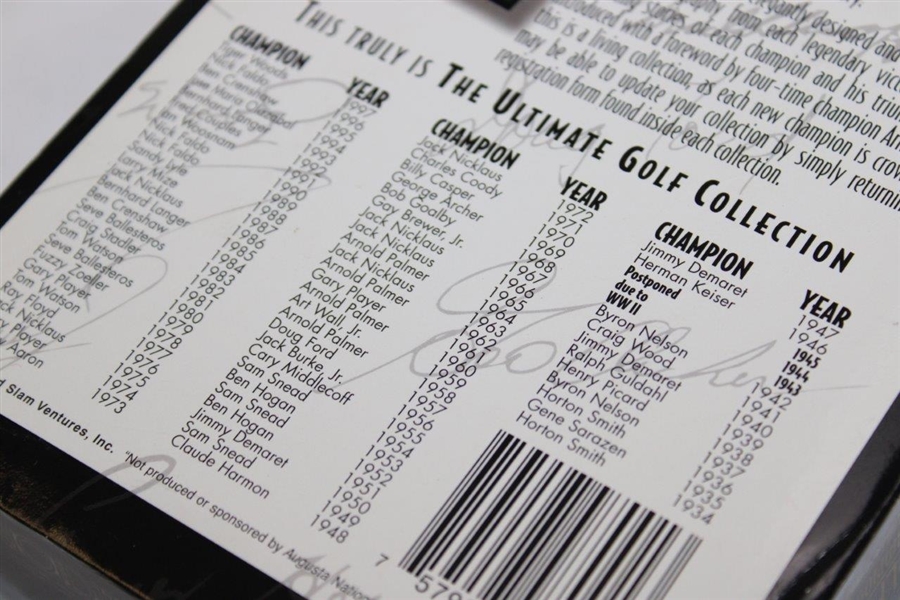 elegantly designed and
from each legendary vict
stories of each champion and his triu
introduced with a foreword by four-time champion Arn
this is a living collection, as each new champion is crow
may be able to update your collection by simply returnin
registration form found inside each collection.
THIS TRULY IS THE ULTIMATE GOLF COLLECTION
CHAMPION YEAR
Tiger Woods 1997
Nick Faldo 1996
Ben Crenshaw 1995
Jose Maria Olazabal 1994
Bernhard Langer 1993
Fred Couples 1992
Ian Woosnam 1991
Nick Faldo 1990
Nick Faldo 1989
Sandy Lyle 1988
Larry Mize 1987
Jack Nicklaus 1986
Bernhard Langer 1985
Ben Crenshaw 1984
Seve Ballesteros 1983
Craig Stadler 1982
Tom Watson 1981
Seve Ballesteros 1980
Fuzzy Zoeller 1979
Gary Player 1978
Tom Watson 1977
Ray Floyd 1976
Jack Nicklaus 1975
Player 1974
Aaron 1973
CHAMPION YEAR
Jack Nicklaus 1972
Charles Coody 1971
Billy Casper 1970
George Archer 1969
Bob Goalby 1968
Gay Brewer, Jr. 1967
Jack Nicklaus 1966
Jack Nicklaus 1965
Arnold Palmer 1964
Jack Nicklaus 1963
Arnold Palmer 1962
Gary Player 1961
Arnold Palmer 1960
Art Wall, Jr. 1959
Arnold Palmer 1958
Doug Ford 1957
Jack Burke, Jr. 1956
Cary Middlecoff 1955
Sam Snead 1954
Ben Hogan 1953
Sam Snead 1952
Ben Hogan 1951
Jimmy Demaret 1950
Sam Snead 1949
Claude Harmon 1948
CHAMPION YEAR
Jimmy Demaret 1947
Herman Keiser 1946
Postponed 1945
due to 1944
WW II 1943
Byron Nelson 1942
Craig Wood 1941
Jimmy Demaret 1940
Ralph Guldahl 1939
Henry Picard 1938
Byron Nelson 1937
Horton Smith 1936
Gene Sarazen 1935
Horton Smith 1934
Slam Ventures, Inc.
*Not produced or sponsored by Augusta National
7